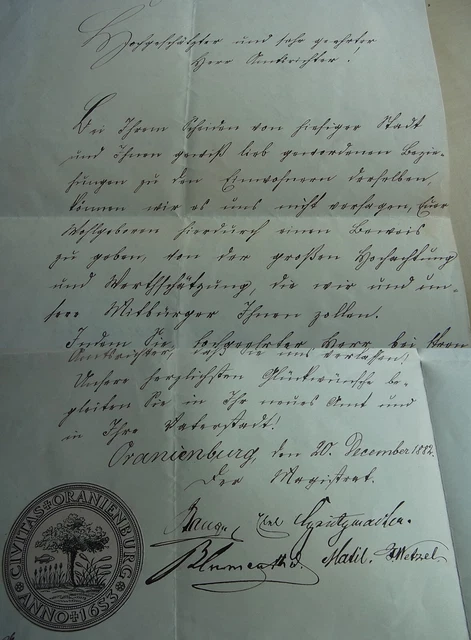 Hochgeschätzter und sehr geehrter
Herr Amtsrichter!
Bei Ihrem Scheiden von hiesiger Stadt
und Ihnen gewiß lieb gewordenen Bezie-
hungen zu den Einwohnern derselben,
können wir es uns nicht versagen, Euer
Wohlgeboren hierdurch einen Beweis
zu geben, von der großen Hochachtung
und Werthschätzung, die wir und un-
sere Mitbürger Ihnen zollen.
Indem Sie, hochgeehrter Herr, bei Ihren
Amtsrichter, daß Sie uns verlassen,
Unsere herzlichsten Glückwünsche be-
gleiten Sie in Ihr neues Amt und
in Ihre Vaterstadt!
Oranienburg, den 20. December 1882.
Der Magistrat.
Blumenthal Wetzel.
CIVITAS ORANIENBURG
ANNO 1653